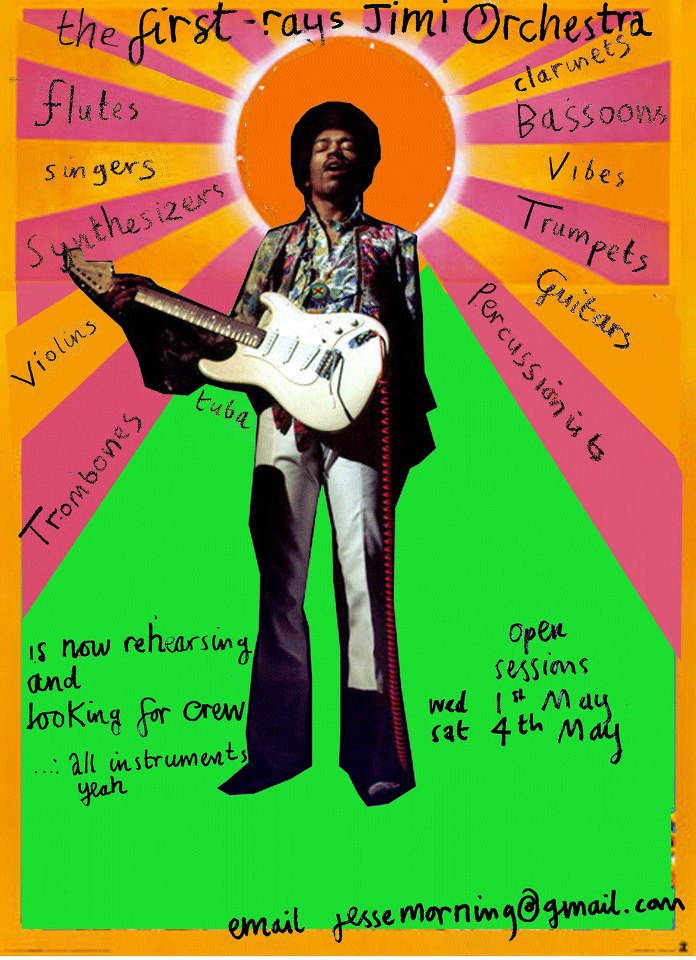 the first-rays Jimi Orchestra
flutes
singers
Synthesizers
Violins
Trombones
tuba
clarinets
Bassoons
Vibes
Trumpets
Guitars
percussionists
is now rehearsing
and
looking for crew
...: all instruments
yeah
open
sessions
wed 1st May
sat 4th May
email jessemorning@gmail.com